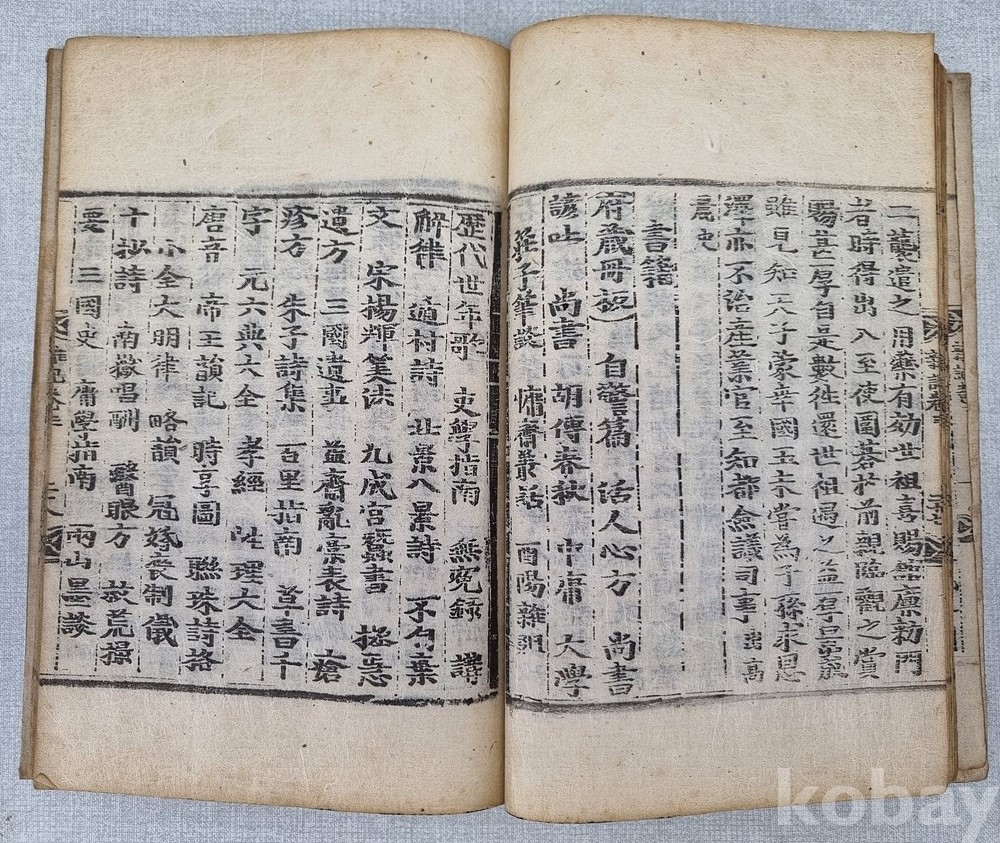 二藝遣之用藥有効世祖喜賜舘廪勑門
者時得出入至使圖碁於前親臨觀之賞
賜甚厚自是數徃還世祖遇之益
雖見知天子蒙幸國王未嘗為子孫求恩
澤亦不治産業官至知都僉議司事 出高
麗史
書籍
府藏冊板 自警篇 活人心方 尚書
諺吐 尚書 胡傳春秋 中庸 大學
莊子 筆談 慵齋叢話 酉陽雜俎
歷代世年歌 吏學指南 無寃錄 講
解律 遁村詩 八景詩
文 宋楊輝筭法 九成宮 蠶書
遺方 三國遺事 益齋亂藁 詩 瘡
疹方 朱子詩集 百里指南 草書千
字 元六典 六全 孝經 性理大全
唐音 帝王韻記 時享圖 聯珠詩格
小全 大明律 略韻 冠婚喪制儀
十抄詩 南嶽唱酬 醫眼方 救荒撮
要 三國史 庸學指南 兩山墨談
kobay